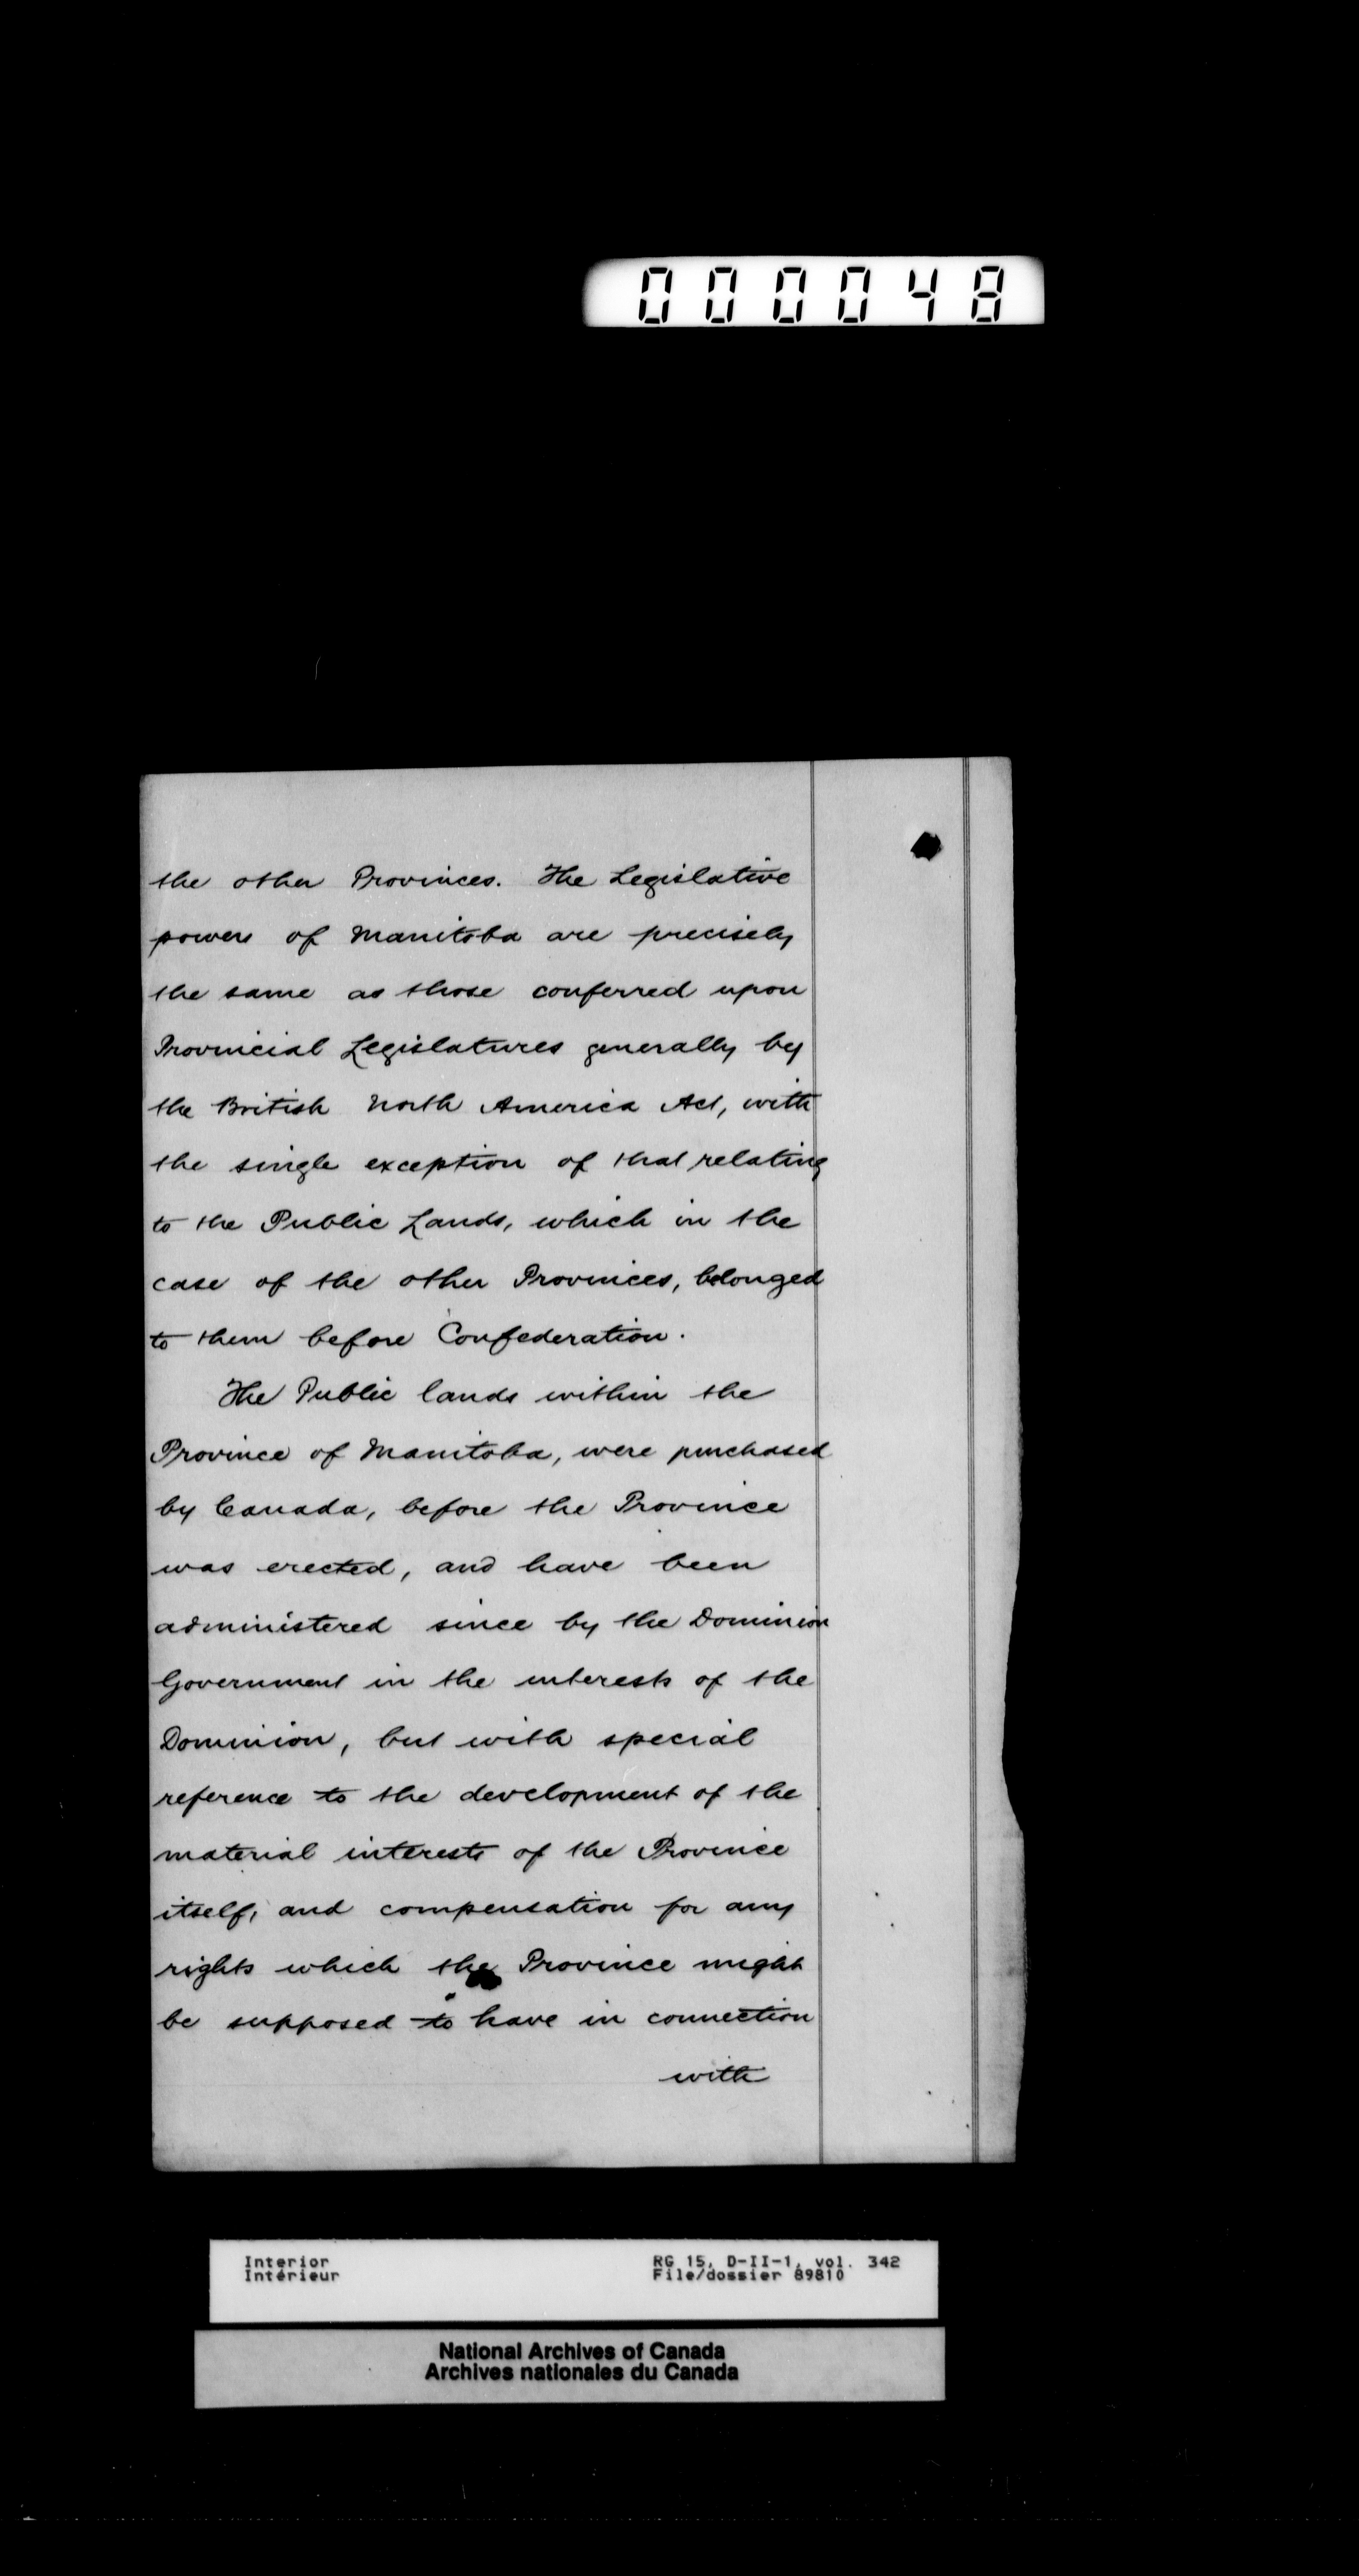 000048
the other Provinces. The Legislative
powers of Manitoba are precisely
the same as those conferred upon
Provincial Legislatures generally by
the British North America Act, with
the single exception of that relating
to the Public Lands, which in the
case of the other Provinces, belonged
to them before Confederation.
The Public lands within the
Province of Manitoba, were purchased
by Canada, before the Province
was erected, and have been
administered since by the Dominion
Government in the interests of the
Dominion, but with special
reference to the development of the
material interests of the Province
itself, and compensation for any
rights which the Province might
be supposed to have in connection
with
Interior RG 15, D-II-1, vol. 342
Intérieur File/dossier 89810
National Archives of Canada
Archives nationales du Canada